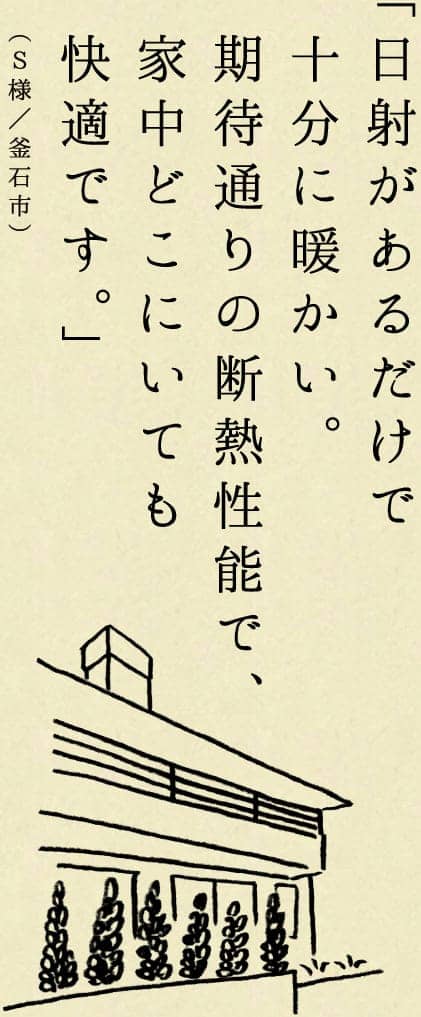 「日射があるだけで
十分に暖かい。
期待通りの断熱性能で、
家中どこにいても
快適です。」
（S様／釜石市）